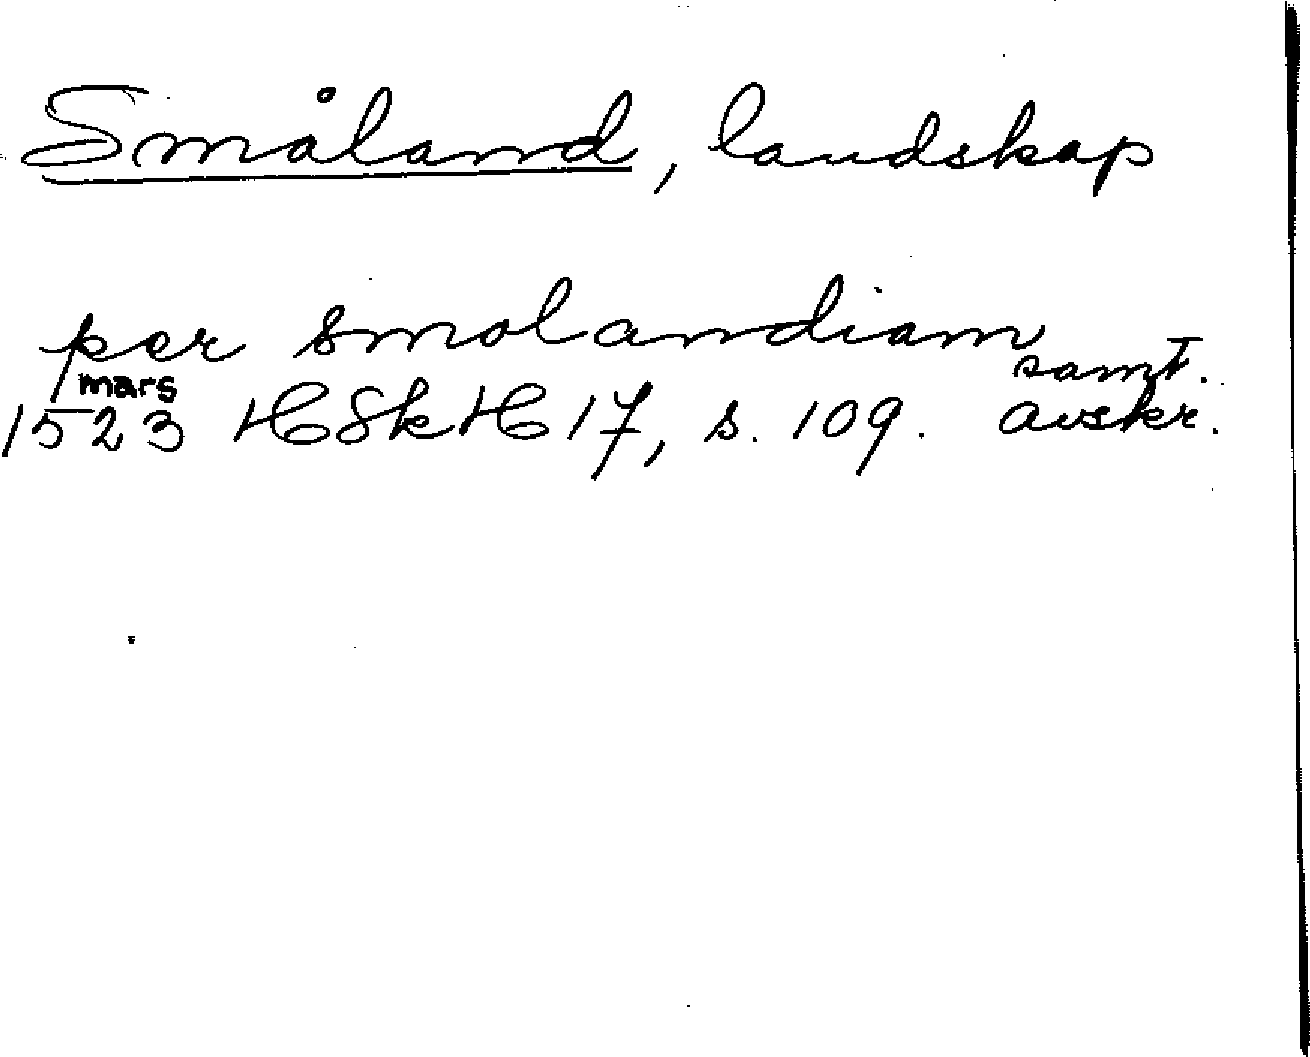 Småland, landskap
per smolandiam
mars samt.
1523 HSkH 17, s. 109. avskr.